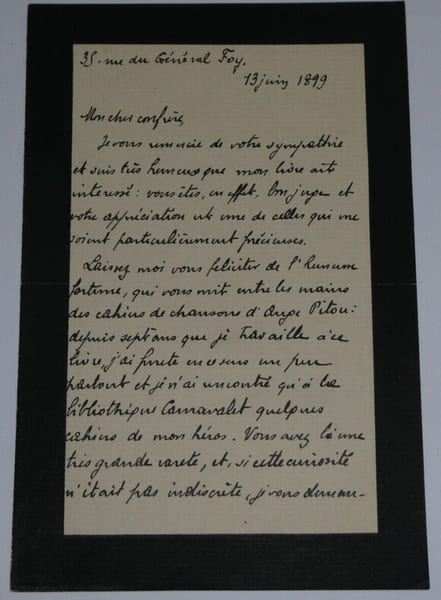 35. rue du Général Foy.
13 juin 1899
Mon cher confrère,
Je vous remercie de votre sympathie
et suis très heureux que mon livre ait
intéressé : vous êtes, en effet, bon juge et
votre appréciation est une de celles qui me
soient particulièrement précieuses.
Laissez moi vous féliciter de l'heureuse
fortune, qui vous mit entre les mains
des cahiers de chansons d'Ange Pitou :
depuis sept ans que je travaille à ce
livre, j'ai fureté en ce sens un peu
partout et je n'ai rencontré qu'à la
bibliothèque Carnavalet quelques
cahiers de mon héros. Vous avez là une
très grande rareté, et, si cette curiosité
n'était pas indiscrète, je vous deman-